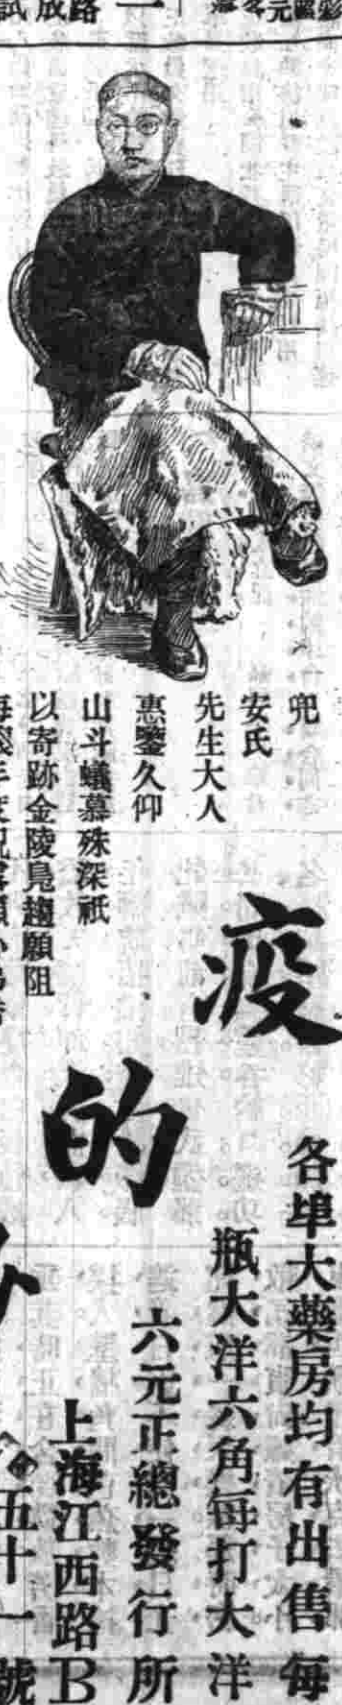 兜
安氏
先生大人
惠鑒久仰
山斗蟻慕殊深祇
以寄跡金陵鳧趨願阻
疫
的
各埠大藥房均有出售每
瓶大洋六角每打大洋
六元正總發行所
上海江西路B
五十一號